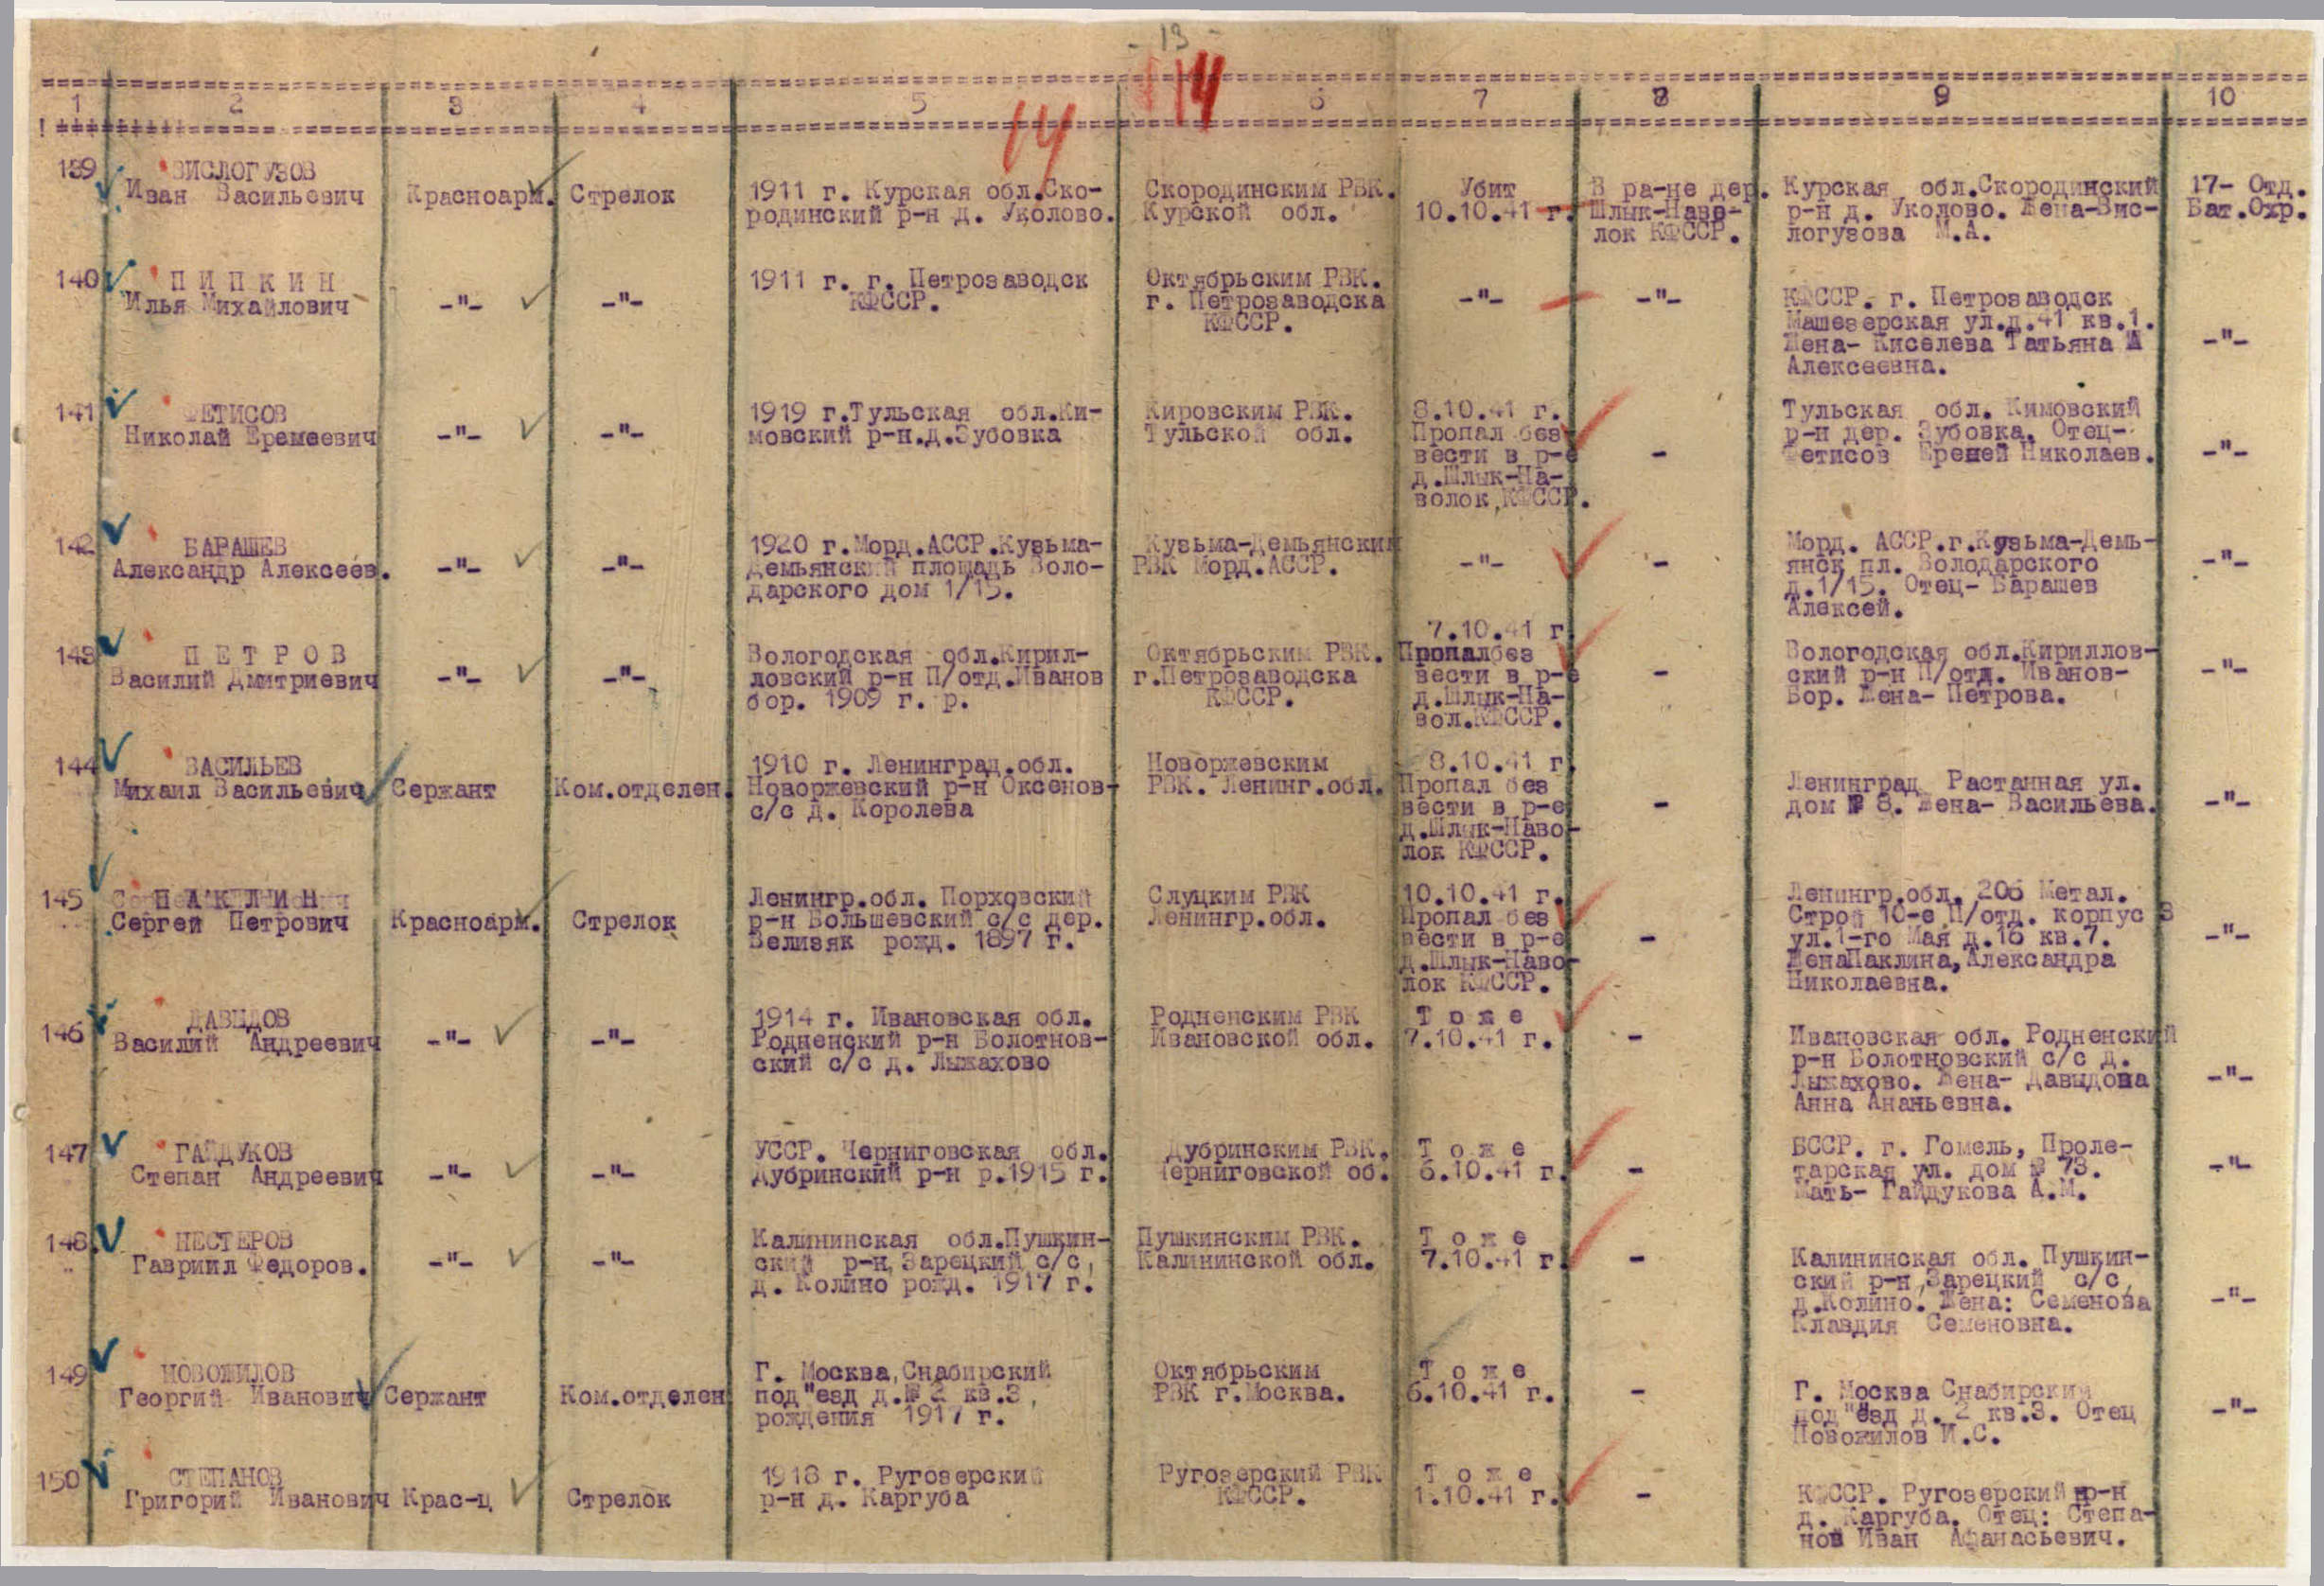 - 13 -
14
14
1 2 3 4 5 6 7 8 9 10
139 ВИСЛОГУЗОВ
Иван Васильевич
Красноарм.
Стрелок
1911 г. Курская обл.Ско-
родинский р-н д. Уколово.
Скородинским РВК.
Курской обл.
Убит
10.10.41 г.
В ра-не дер.
Шлык-Наво-
лок КФССР.
Курская обл.Скородинский
р-н д. Уколово. Жена-Вис-
логузова М.А.
17- Отд.
Бат.Охр.
140 ПИПКИН
Илья Михайлович
-"-
-"-
1911 г. г. Петрозаводск
КФССР.
Октябрьским РВК.
г. Петрозаводска
КФССР.
-"-
-"-
КФССР. г. Петрозаводск
Машезерская ул.д.41 кв.1.
Жена- Киселева Татьяна
Алексеевна.
-"-
141 ФЕТИСОВ
Николай Еремеевич
-"-
-"-
1919 г.Тульская обл.Ки-
мовский р-н.д.Зубовка
Кировским РВК.
Тульской обл.
8.10.41 г.
Пропал без
вести в р-е
д.Шлык-На-
волок,КФССР.
-
Тульская обл. Кимовский
р-н дер. Зубовка. Отец-
Фетисов Еремей Николаев.
-"-
142 БАРАШЕВ
Александр Алексеев.
-"-
-"-
1920 г.Морд.АССР.Кузьма-
Демьянский площадь Воло-
дарского дом 1/15.
Кузьма-Демьянским
РВК Морд.АССР.
-"-
-
Морд. АССР.г.Кузьма-Демь-
янск пл. Володарского
д.1/15. Отец- Барашев
Алексей.
-"-
143 ПЕТРОВ
Василий Дмитриевич
-"-
-"-
Вологодская обл.Кирил-
ловский р-н П/отд.Иванов
бор. 1909 г. р.
Октябрьским РВК.
г.Петрозаводска
КФССР.
7.10.41 г.
Пропалбез
вести в р-е
д.Шлык-На-
вол.КФССР.
-
Вологодская обл.Кириллов-
ский р-н П/отд. Иванов-
Бор. Жена- Петрова.
-"-
144 ВАСИЛЬЕВ
Михаил Васильевич
Сержант
Ком.отделен.
1910 г. Ленинград.обл.
Новоржевский р-н Оксенов-
с/с д. Королева
Новоржевским
РВК. Ленинг.обл.
8.10.41 г.
Пропал без
вести в р-е
д.Шлык-Наво-
лок КФССР.
-
Ленинград Растанная ул.
дом № 8. Жена- Васильева.
-"-
145 ПАКЛИН
Сергей Петрович
Красноарм.
Стрелок
Ленингр.обл. Порховский
р-н Большевский с/с дер.
Велизяк рожд. 1897 г.
Слуцким РВК
Ленингр.обл.
10.10.41 г.
Пропал без
вести в р-е
д.Шлык-Наво-
лок КФССР.
-
Ленингр.обл. 206 Метал.
Строй 10-е П/отд. корпус 3
ул.1-го Мая д.16 кв.7.
ЖенаПаклина,Александра
Николаевна.
-"-
146 ДАВЫДОВ
Василий Андреевич
-"-
-"-
1914 г. Ивановская обл.
Родненский р-н Болотнов-
ский с/с д. Лыжахово
Родненским РВК
Ивановской обл.
Тоже
7.10.41 г.
-
Ивановская обл. Родненский
р-н Болотновский с/с д.
Лыжахово. Жена- Давыдова
Анна Ананьевна.
-"-
147 ГАЙДУКОВ
Степан Андреевич
-"-
-"-
УССР. Черниговская обл.
Дубринский р-н р.1915 г.
Дубринским РВК.
Черниговской об.
Тоже
6.10.41 г.
-
БССР. г. Гомель, Проле-
тарская ул. дом № 73.
Мать- Гайдукова А.М.
-"-
148 НЕСТЕРОВ
Гавриил Федоров.
-"-
-"-
Калининская обл.Пушкин-
ский р-н,Зарецкий с/с,
д. Колино рожд. 1917 г.
Пушкинским РВК.
Калининской обл.
Тоже
7.10.41 г
-
Калининская обл. Пушкин-
ский р-н,Зарецкий с/с,
д.Колино. Жена: Семенова
Клавдия Семеновна.
-"-
149 НОВОЖИЛОВ
Георгий Иванович
Сержант
Ком.отделен
Г. Москва,Снабирский
под"езд д.№ 2 кв.3,
рождения 1917 г.
Октябрьским
РВК г.Москва.
Тоже
6.10.41 г.
-
Г. Москва Снабирский
под"езд д. 2 кв.3. Отец
Новожилов И.С.
-"-
150 СТЕПАНОВ
Григорий Иванович
Крас-ц
Стрелок
1918 г. Ругозерский
р-н д. Каргуба
Ругозерский РВК
КФССР.
Тоже
1.10.41 г.
-
КФССР. Ругозерский р-н
д. Каргуба. Отец: Степа-
нов Иван Афанасьевич.